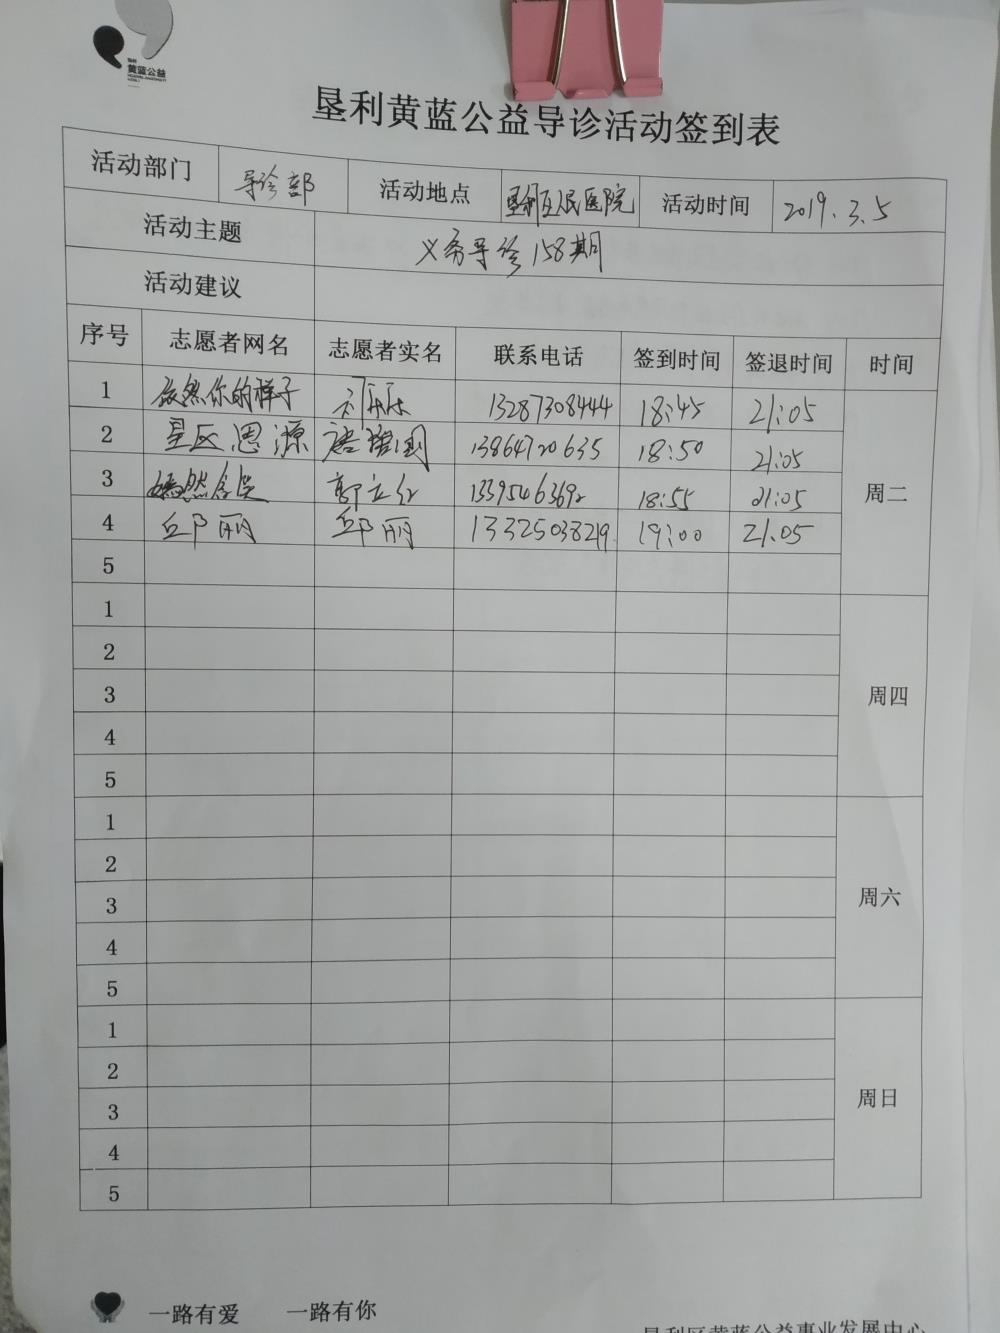 黄蓝公益
垦利黄蓝公益导诊活动签到表
活动部门 导诊部 活动地点 垦利区人民医院 活动时间 2019.3.5
活动主题 义务导诊158期
活动建议
序号 志愿者网名 志愿者实名 联系电话 签到时间 签退时间 时间
1 依然你的样子 13287308444 18:45 21:05
2 星区恩源 13864720635 18:50 21:05
3 嫣然含笑 郭立红 13395463692 18:55 21:05
周二
4 邱丽 邱丽 13325038219 19:00 21:05
5
1
2
3
周四
4
5
1
2
3
周六
4
5
1
2
3
周日
4
5
一路有爱 一路有你
垦利区黄蓝公益事业发展中心